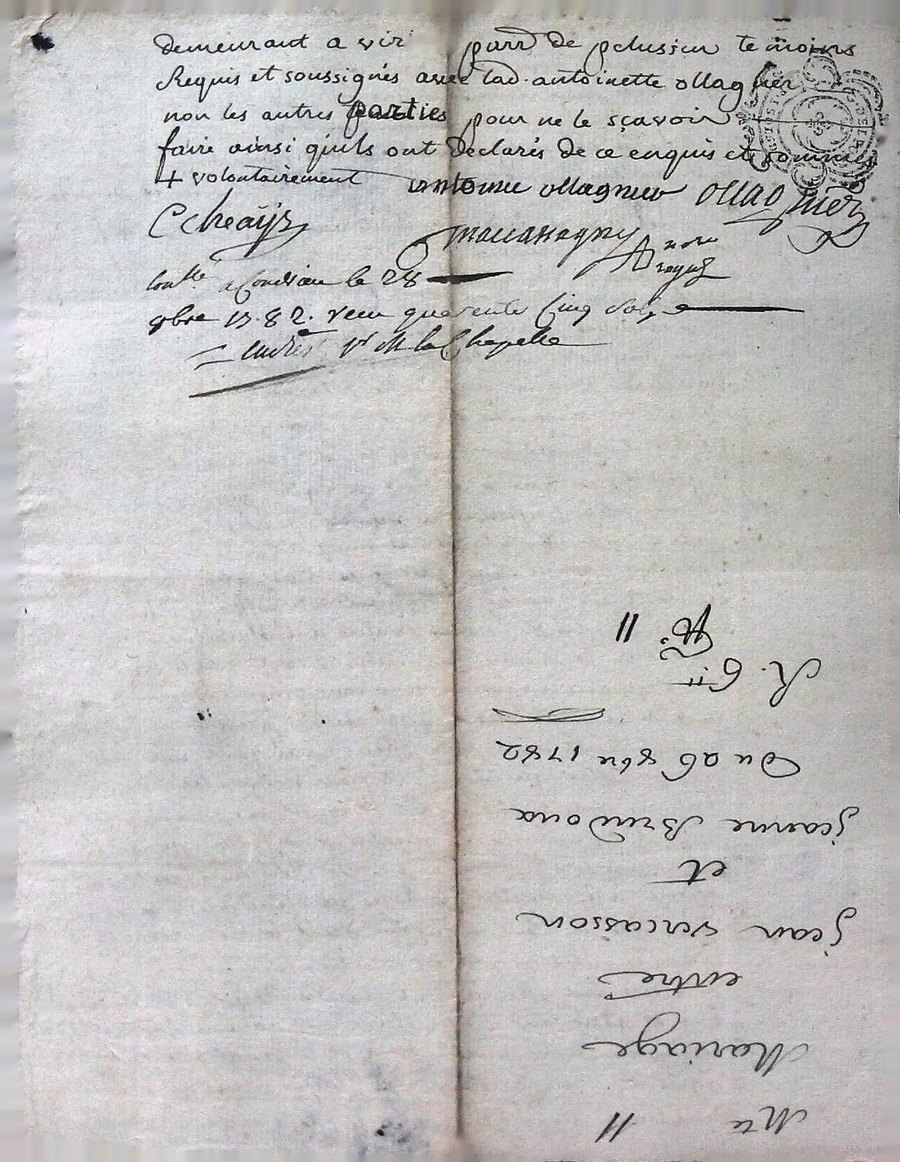 demeurant a viri parr de pelussin temoins
Requis et soussignés avec lad. antoinette ollagnier
non les autres parties pour ne le sçavoir
faire ainsi quils ont declarés de ce enquis et sommés
+ volontairement antoinne ollagnier ollagnier
Ccheãys
a Condrieu le 28
8bre 1782. reçu quarente Cinq sols
Mte 11
Mariage
entre
jean vercasson
et
jeanne Brudona
Du 26 8bre 1782
R. 6 11
11